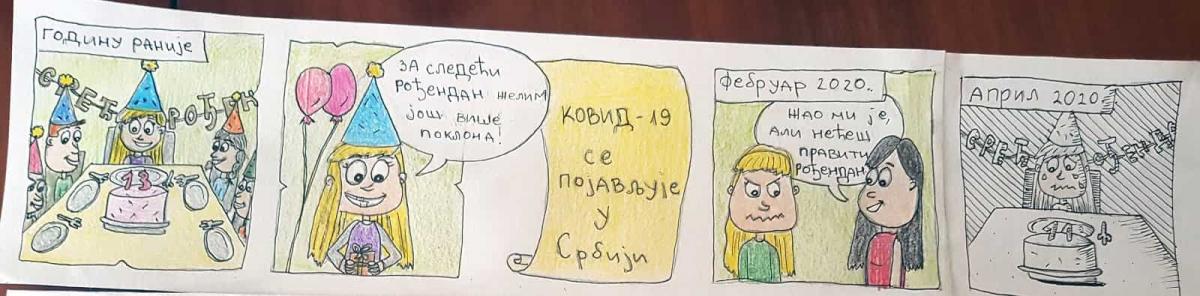 ГОДИНУ РАНИЈЕ
СРЕЋ РОЂЕН
13
ЗА СЛЕДЕЋИ
РОЂЕНДАН ЖЕЛИМ
ЈОШ ВИШЕ
ПОКЛОНА!
КОВИД-19
СЕ
ПОЈАВЉУЈЕ
У
Србији
ФЕБРУАР 2020..
ЖАО МИ ЈЕ,
АЛИ НЕЋЕШ
ПРАВИТИ
РОЂЕНДАН
АПРИЛ 2020.
СРЕЋ РОЂЕНД
14